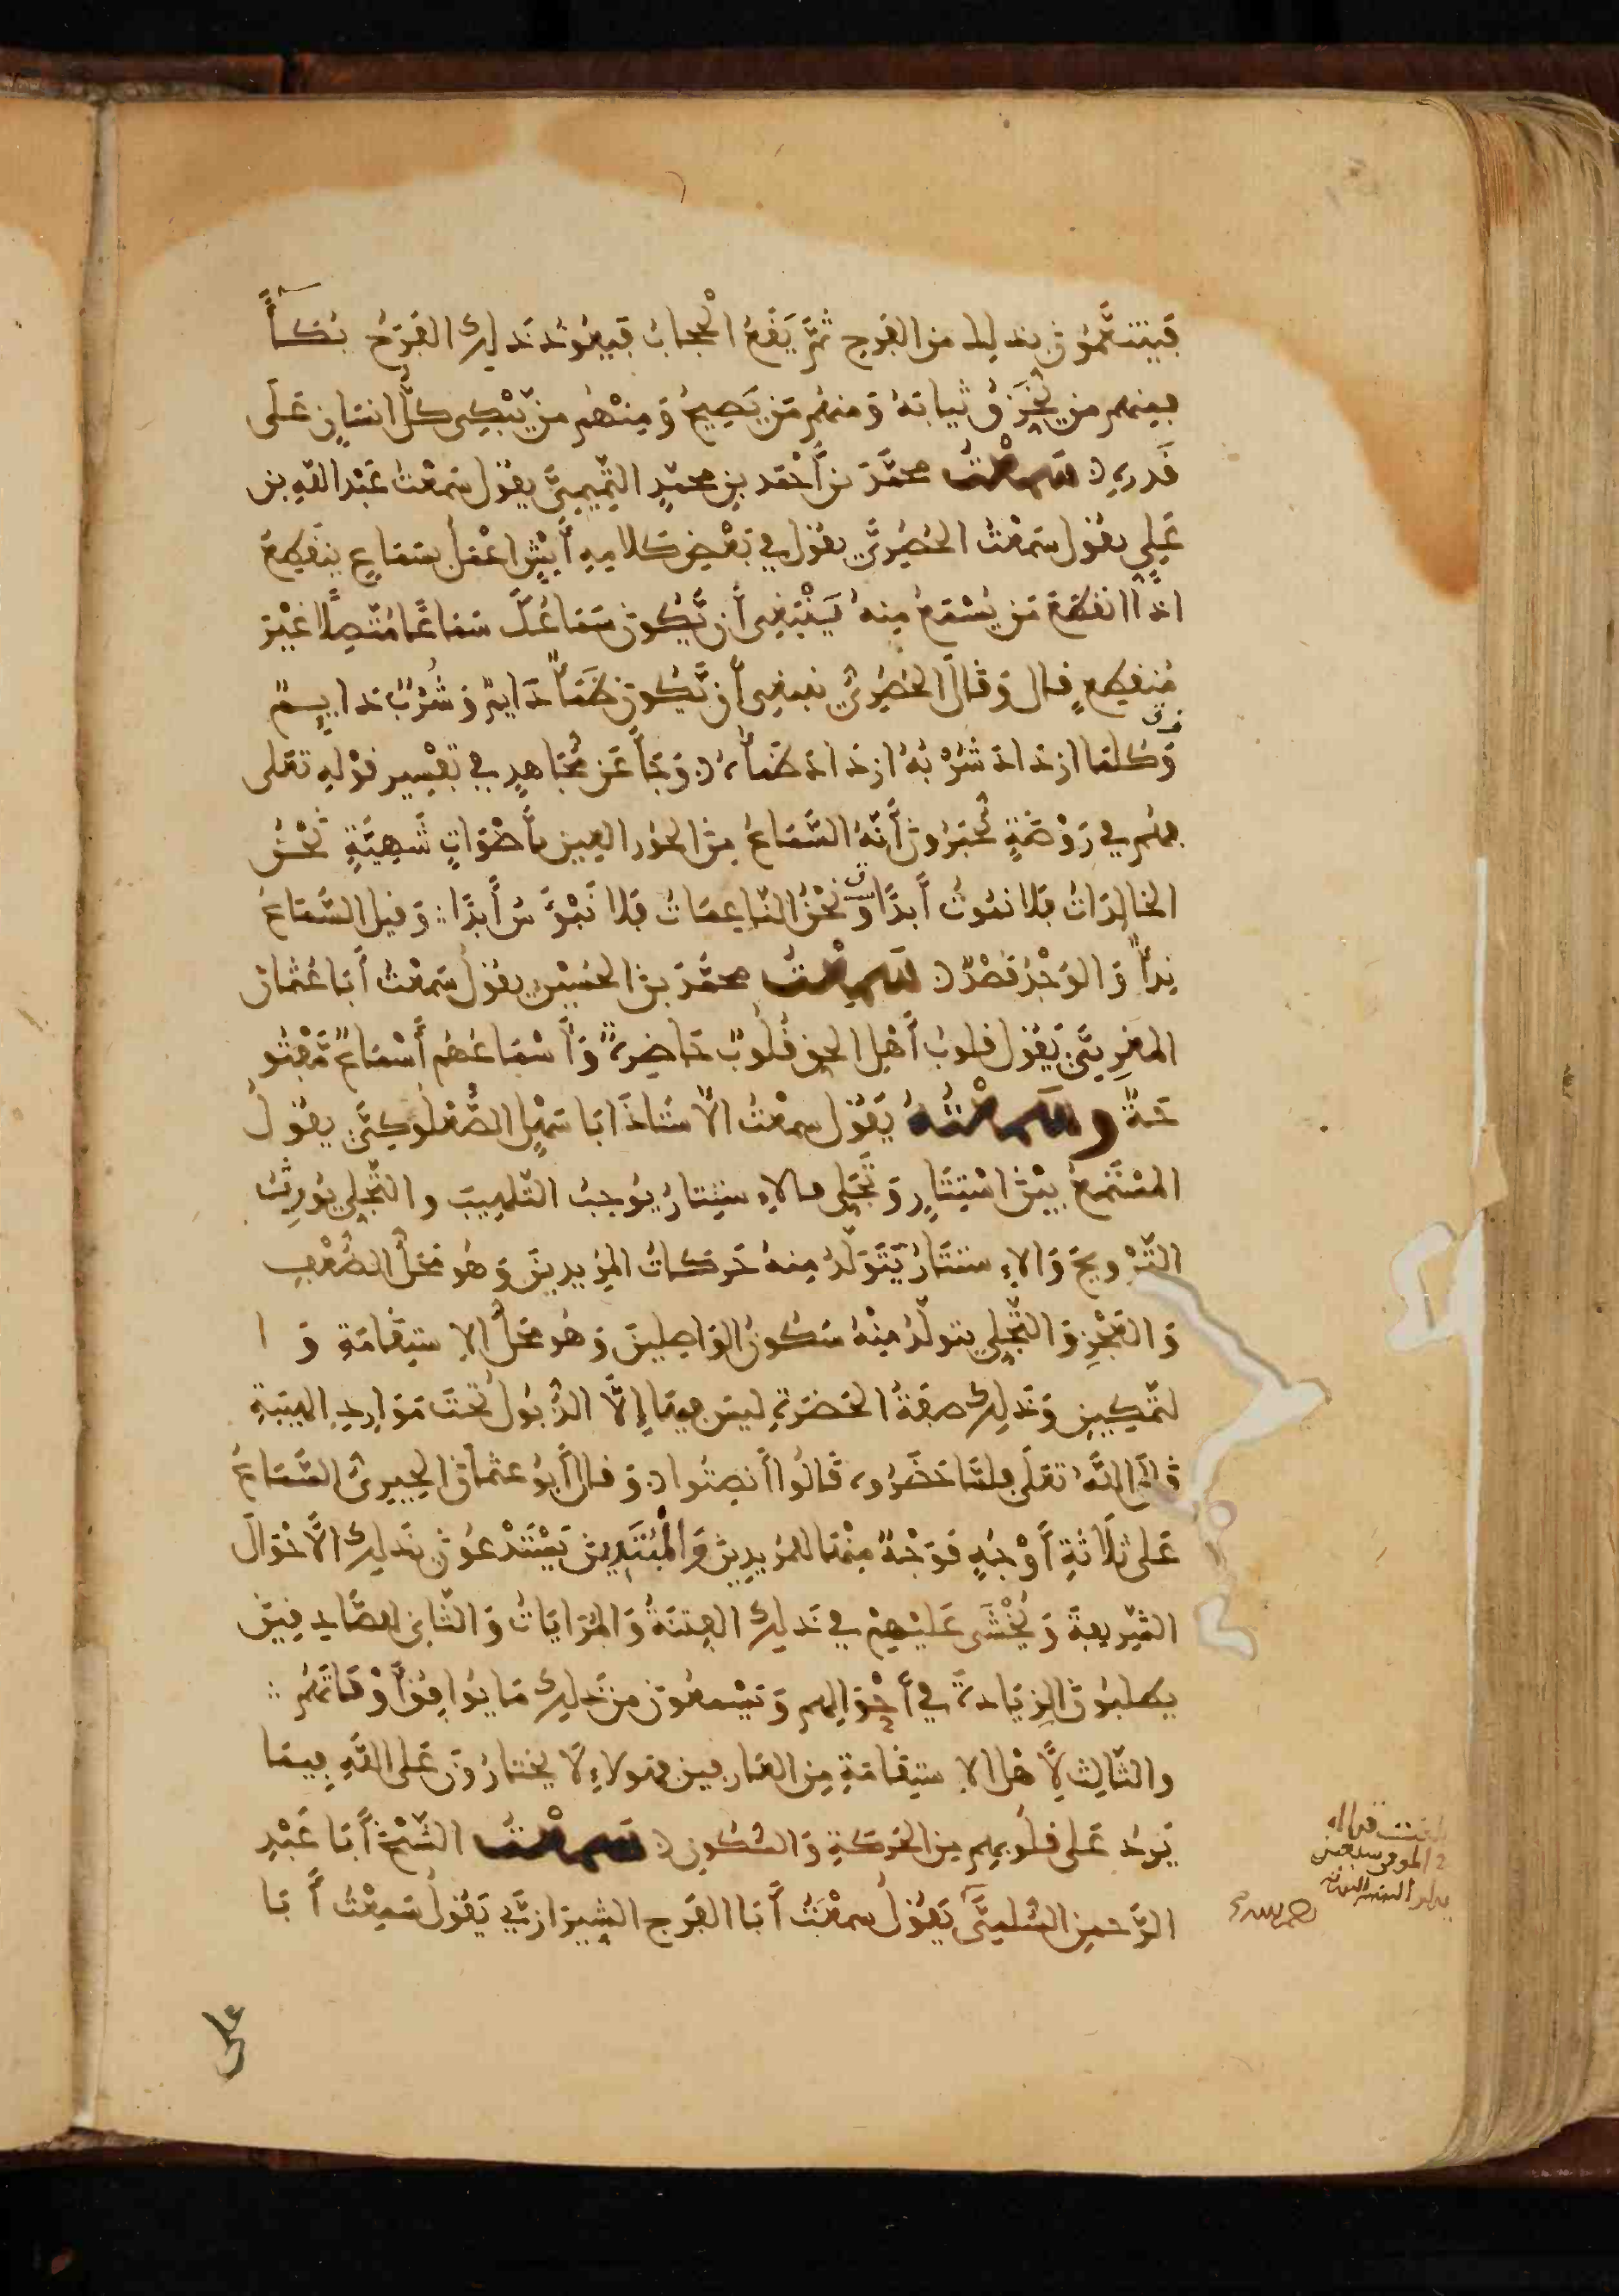 فيتنعّمون بذلك من الفرح ثمّ يقع الحجاب فيعود ذلك الفرح بكاءً
فمنهم من يخرّق ثيابه ومنهم من يصيح ومنهم من يبكي كلّ انسان على
قدره سمعت محمّد بن أحمد بن محمّد التّميميّ يقول سمعت عبد الله بن
علي يقول سمعت الحصريّ يقول في بعض كلامه أيش اعمل بسماع ينقطع
اذا انقطع من يسمع منه ينبغي أن يّكون سماعك سماعًا متّصلا غير
منقطع قال وقال الحصريّ ينبغي أن يّكون ظمأ دايم وشرب دايم
وكلما ازداد شربه ازداد ظمأه وجآ عن مجاهد في تفسير قوله تعلى
فهم في روضة يحبرون أنّه السّماع من الحور العين بأصوات شهيّة نحن
الخالدات فلا نموت أبدًا ونحن النّاعمات فلا نبؤس أبدًا وقيل السّماع
ندآ والوجد قصد سمعت محمّد بن الحسين يقول سمعت أبا عثمان
المغربيّ يقول قلوب أهل الحق قلوب حاضرة وأسماعهم أسماع مّفتو
حة وسمعته يقول سمعت الأستاذ ابا سهل الصّعلوكيّ يقول
المستمع بين استتار وتجلي فالاستتار يوجب التّلهيب والتّجلي يورث
التّرويح والاستتار يتولّد منه حركات المريدين وهو محلّ الضّعف
والعجز والتّجلي يتولّد منه سكون الواصلين وهو محلّ الاستقامة و ا
لتمكين وذلك صفة الحضرة ليس فيها إلّا الذّبول تحت موارد الهيبة
قال اللّه تعلى فلمّا حضروه قالوا أنصتوا وقال أبو عثمان الحيريّ السّماع
على ثلاثة أوجه فوجه منها للمريدين والمبتديين يستدعون بذلك الأحوال
الشّريفة ويخشى عليهم في ذلك الفتنة والمرايات والثّاني للصّادفين
يطلبون الزيادة في أحوالهم ويسمعون من ذلك ما يوافق أوقاتهم
والثّالث لأهل الاستقامة من العارفين فهولاء لا يختارون على الله فيما
يرد على قلوبهم من الحركة والسّكون سمعت الشّيخ أبا عبد
الرّحمن السّلميّ يقول سمعت أبا الفرج الشيرازيّ يقول سمعت أبا
على